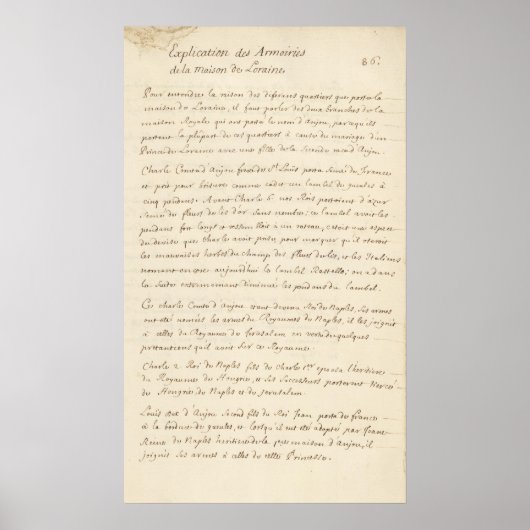 Explication des Armoiries
de la maison de Loraine,
86.
Pour entendre la raison des diferens quartiers que porte la
maison de Loraine, il faut parler des deux branches de la
maison Royale qui ont porté le nom d'Anjou, parcequ'ils
portent la plûpart de ces quartiers à cause du mariage d'un
Prince de Loraine avec une fille de la Seconde race d'Anjou.
Charle Comte d'Anjou frere de St Louis porta Semé de France
et prit pour brisure comme cadet un Lambel de gueules à
cinq pendans. Avant Charle 6 nos Rois portoient d'azur
Semé de fleurs de lis d'or Sans nombre; ce Lambel avoit les
pendans fort longs et ressembloit à un rateau, c'etoit une espece
de devise que Charle avoit prise pour marquer qu'il oteroit
les mauvaises herbes du champ des fleurs de lis, et les Italiens
nomment encore aujourd'hui le Lambel Rastello; on a dans
la Suite diminué les pendans du Lambel.
Ce Charle Comte d'Anjou etant devenu Roi de Naples, Ses armes
ont eté nomées les armes du Royaume de Naples, il les joignit
à celles du Royaume de Jerusalem en vertu de quelques
pretentions qu'il avoit Sur ce Royaume.
Charle 2 Roi de Naples fils de Charle 1er epousa l'heritiere
du Royaume de Hongrie, et Ses Successeurs porterent
de Hongrie de Naples et de Jerusalem.
Louis Duc d'Anjou Second fils du Roi Jean porta de France
à la bordure de gueules, et lorsqu'il eut eté adopté par Jeane
Reine de Naples heritiere de la pre maison d'Anjou, il
joignit Ses armes à celles de cette Princesse.